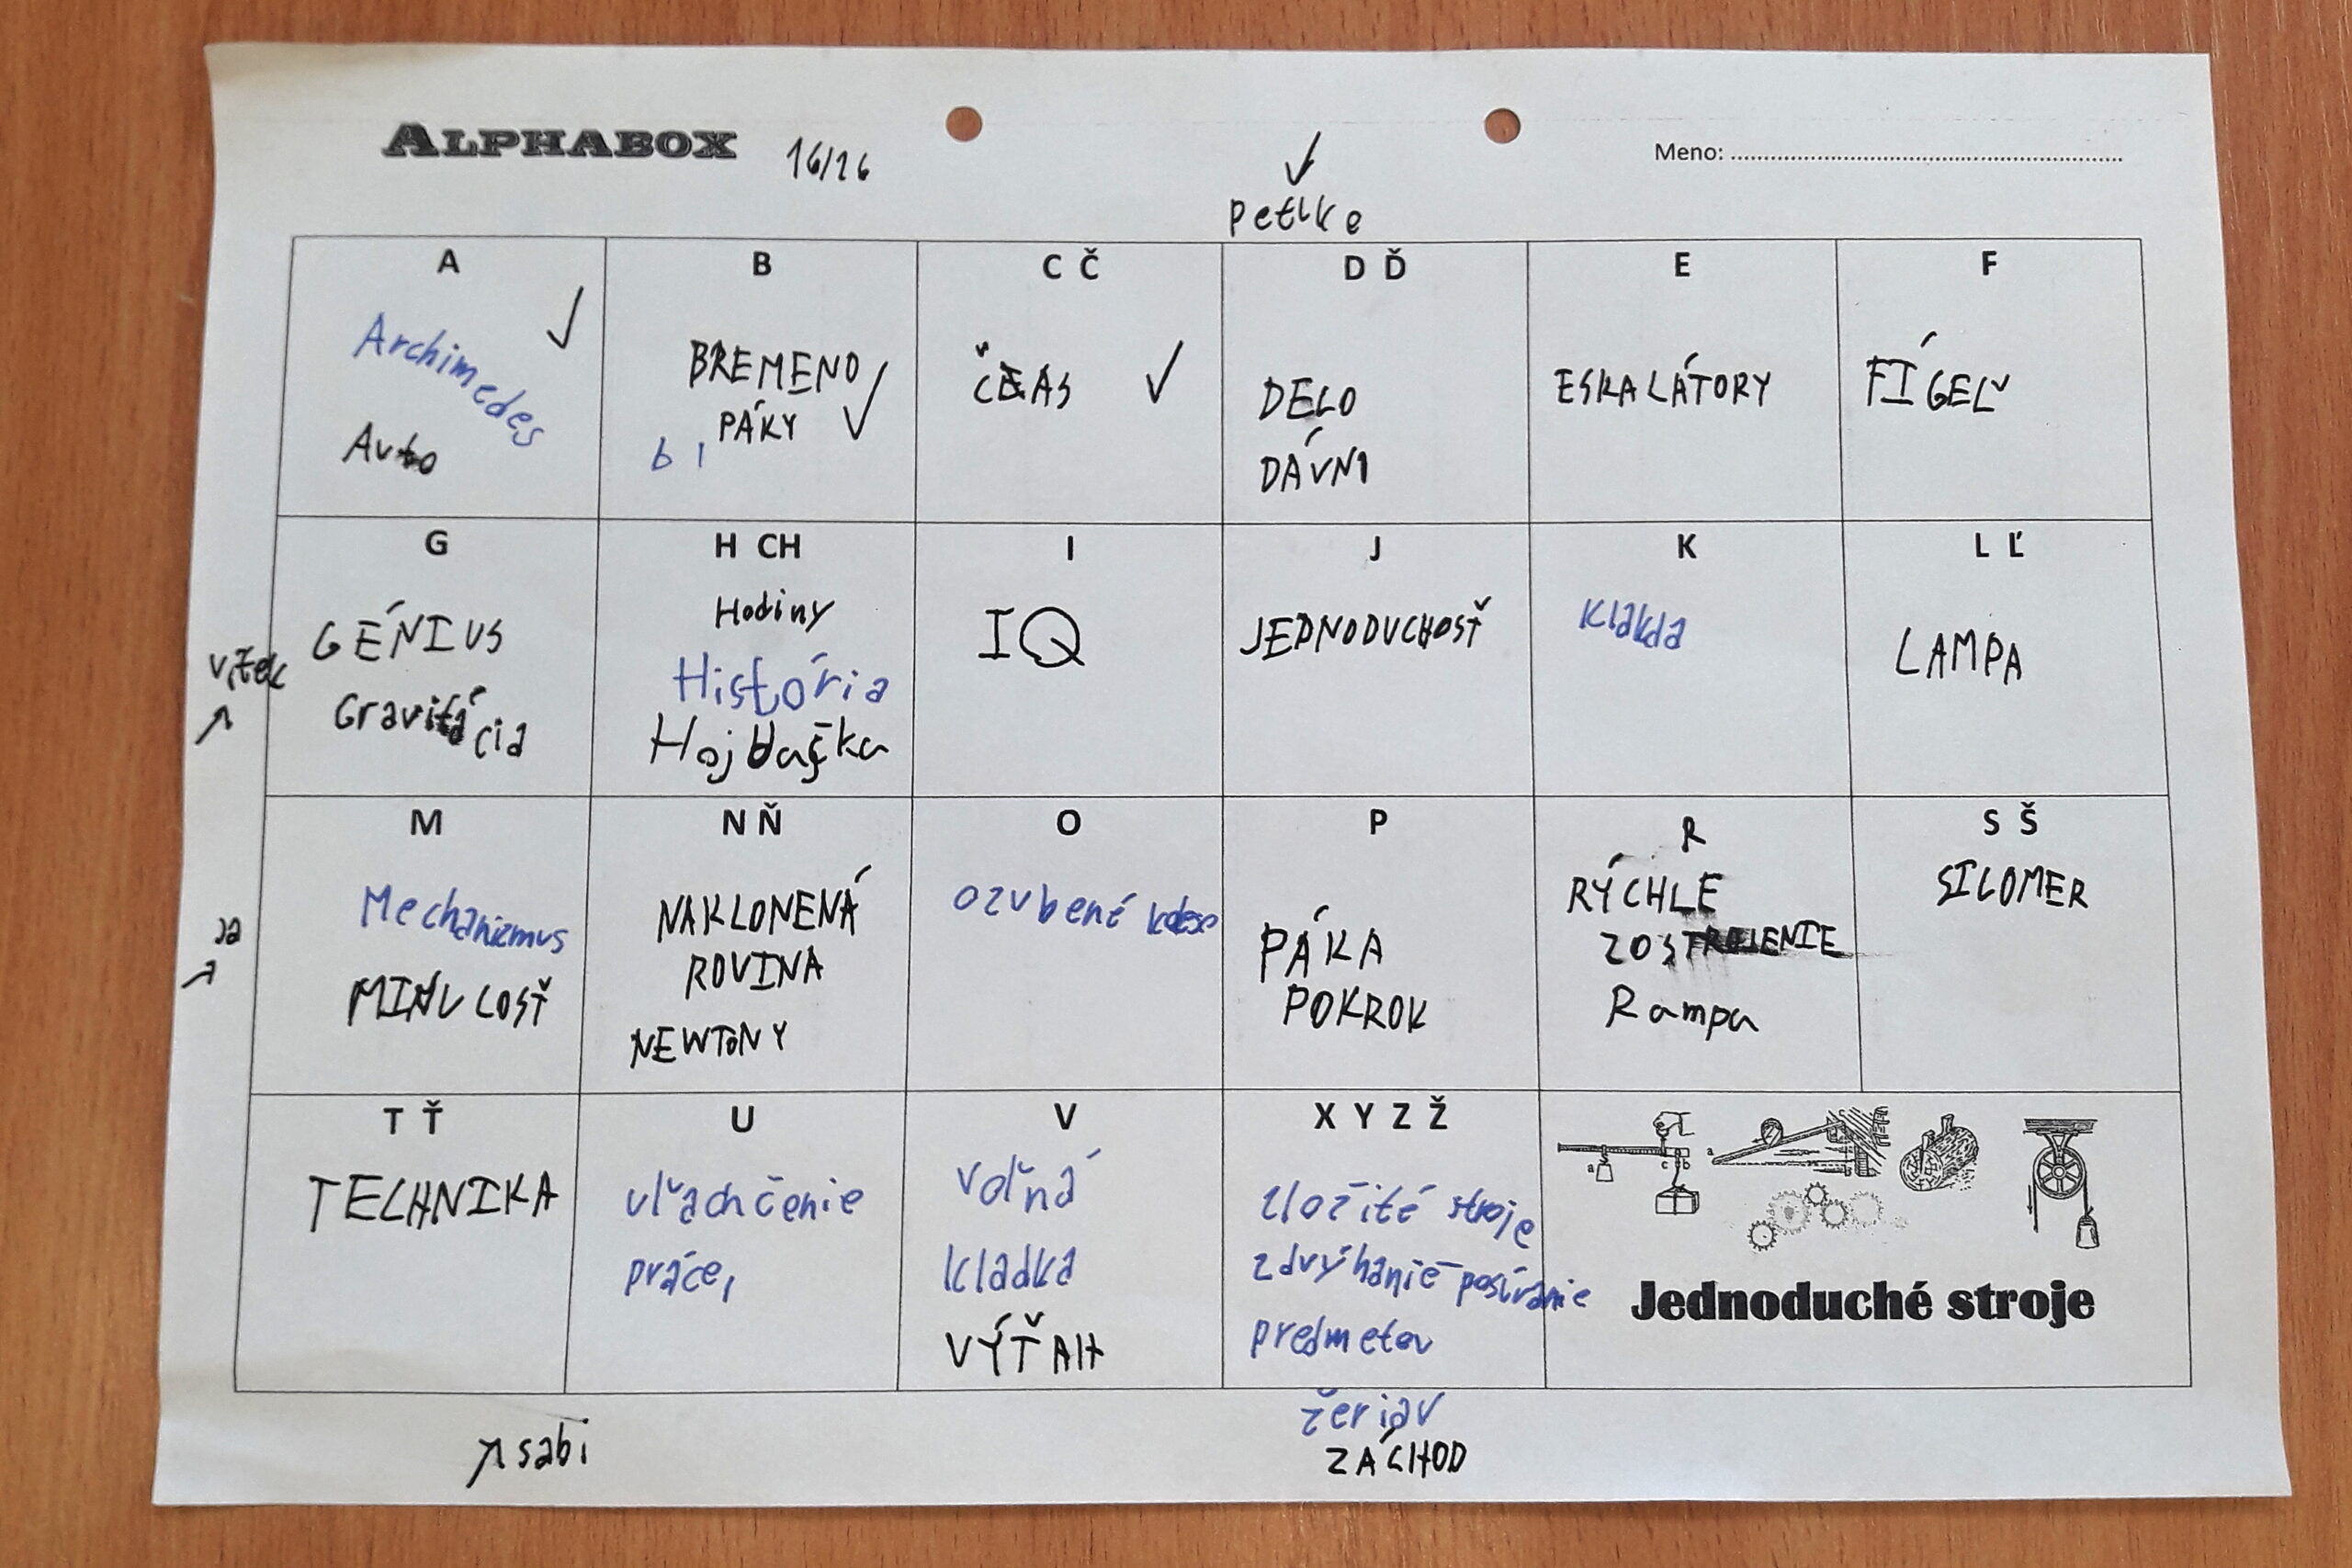 ALPHABOX
16/26
petlke
Meno:
A
Archimedes
Auto
B
BREMENO
PÁKY
b I
C Č
ČEAS
D Ď
DELO
DÁVNI
E
ESKALÁTORY
F
FÍGEĽ
G
GÉNIUS
Gravitácia
vítek
H CH
Hodiny
História
I
IQ
J
JEDNODUCHOSŤ
K
Klakda
L Ľ
LAMPA
M
Mechanizmus
MINULOSŤ
ja
N Ň
NAKLONENÁ
ROVINA
NEWTONY
O
ozubené koleso
P
PÁKA
POKROK
R
RÝCHLE
ZOSTROJENIE
Rampa
S Š
SILOMER
T Ť
TECHNIKA
U
uľachčenie
práce,
V
Voľná
kladka
VÝŤAH
X Y Z Ž
zložité stroje
zdvýhanie-posúvanie
predmetov
žeriav
ZÁCHOD
Jednoduché stroje
sabi